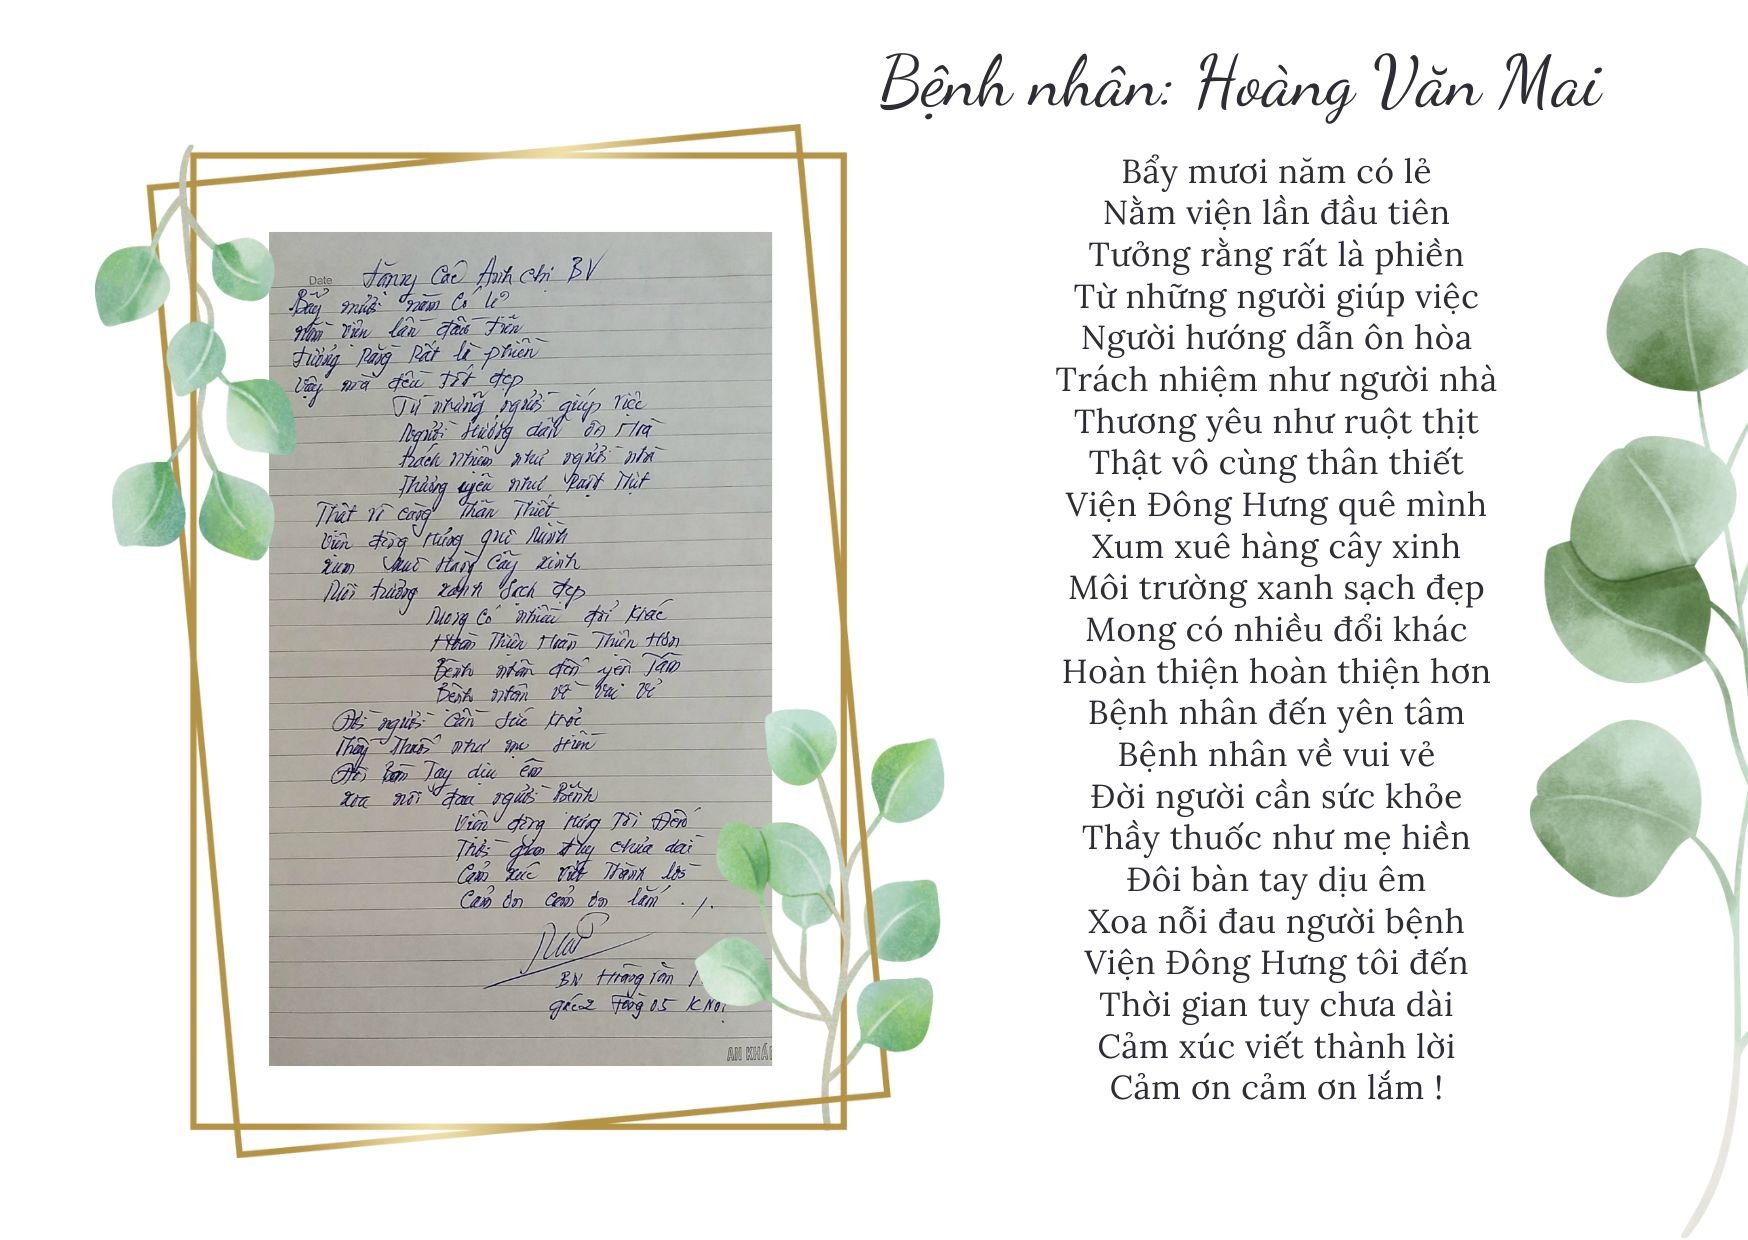 Bệnh nhân: Hoàng Văn Mai
Date
Tặng Các Anh Chị BV
Bẩy mươi năm có lẻ
Nằm viện lần đầu tiên
Tưởng rằng rất là phiền
Vậy mà đều tốt đẹp
Từ những người giúp việc
Người hướng dẫn ôn hoà
Trách nhiệm như người nhà
Thương yêu như ruột thịt
Thật vô cùng thân thiết
Viện đông Hưng quê mình
Xum xuê hàng cây xinh
Môi trường xanh sạch đẹp
Mong có nhiều đổi khác
Hoàn Thiện Hoàn Thiện Hơn
Bệnh nhân đến yên tâm
Bệnh nhân về vui vẻ
Đời người cần sức khỏe
Thầy thuốc như mẹ hiền
Đôi bàn tay dịu êm
Xoa nỗi đau người bệnh
Viện đông Hưng tôi đến
Thời gian tuy chưa dài
Cảm xúc viết thành lời
Cảm ơn cảm ơn lắm ./.
Mai
BN Hoàng Văn
05 K Nội
AN KHÁ
Bẩy mươi năm có lẻ
Nằm viện lần đầu tiên
Tưởng rằng rất là phiền
Từ những người giúp việc
Người hướng dẫn ôn hòa
Trách nhiệm như người nhà
Thương yêu như ruột thịt
Thật vô cùng thân thiết
Viện Đông Hưng quê mình
Xum xuê hàng cây xinh
Môi trường xanh sạch đẹp
Mong có nhiều đổi khác
Hoàn thiện hoàn thiện hơn
Bệnh nhân đến yên tâm
Bệnh nhân về vui vẻ
Đời người cần sức khỏe
Thầy thuốc như mẹ hiền
Đôi bàn tay dịu êm
Xoa nỗi đau người bệnh
Viện Đông Hưng tôi đến
Thời gian tuy chưa dài
Cảm xúc viết thành lời
Cảm ơn cảm ơn lắm !